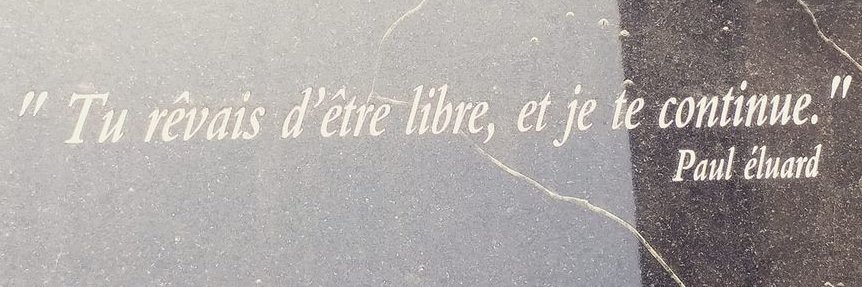 " Tu rêvais d'être libre, et je te continue."
Paul éluard